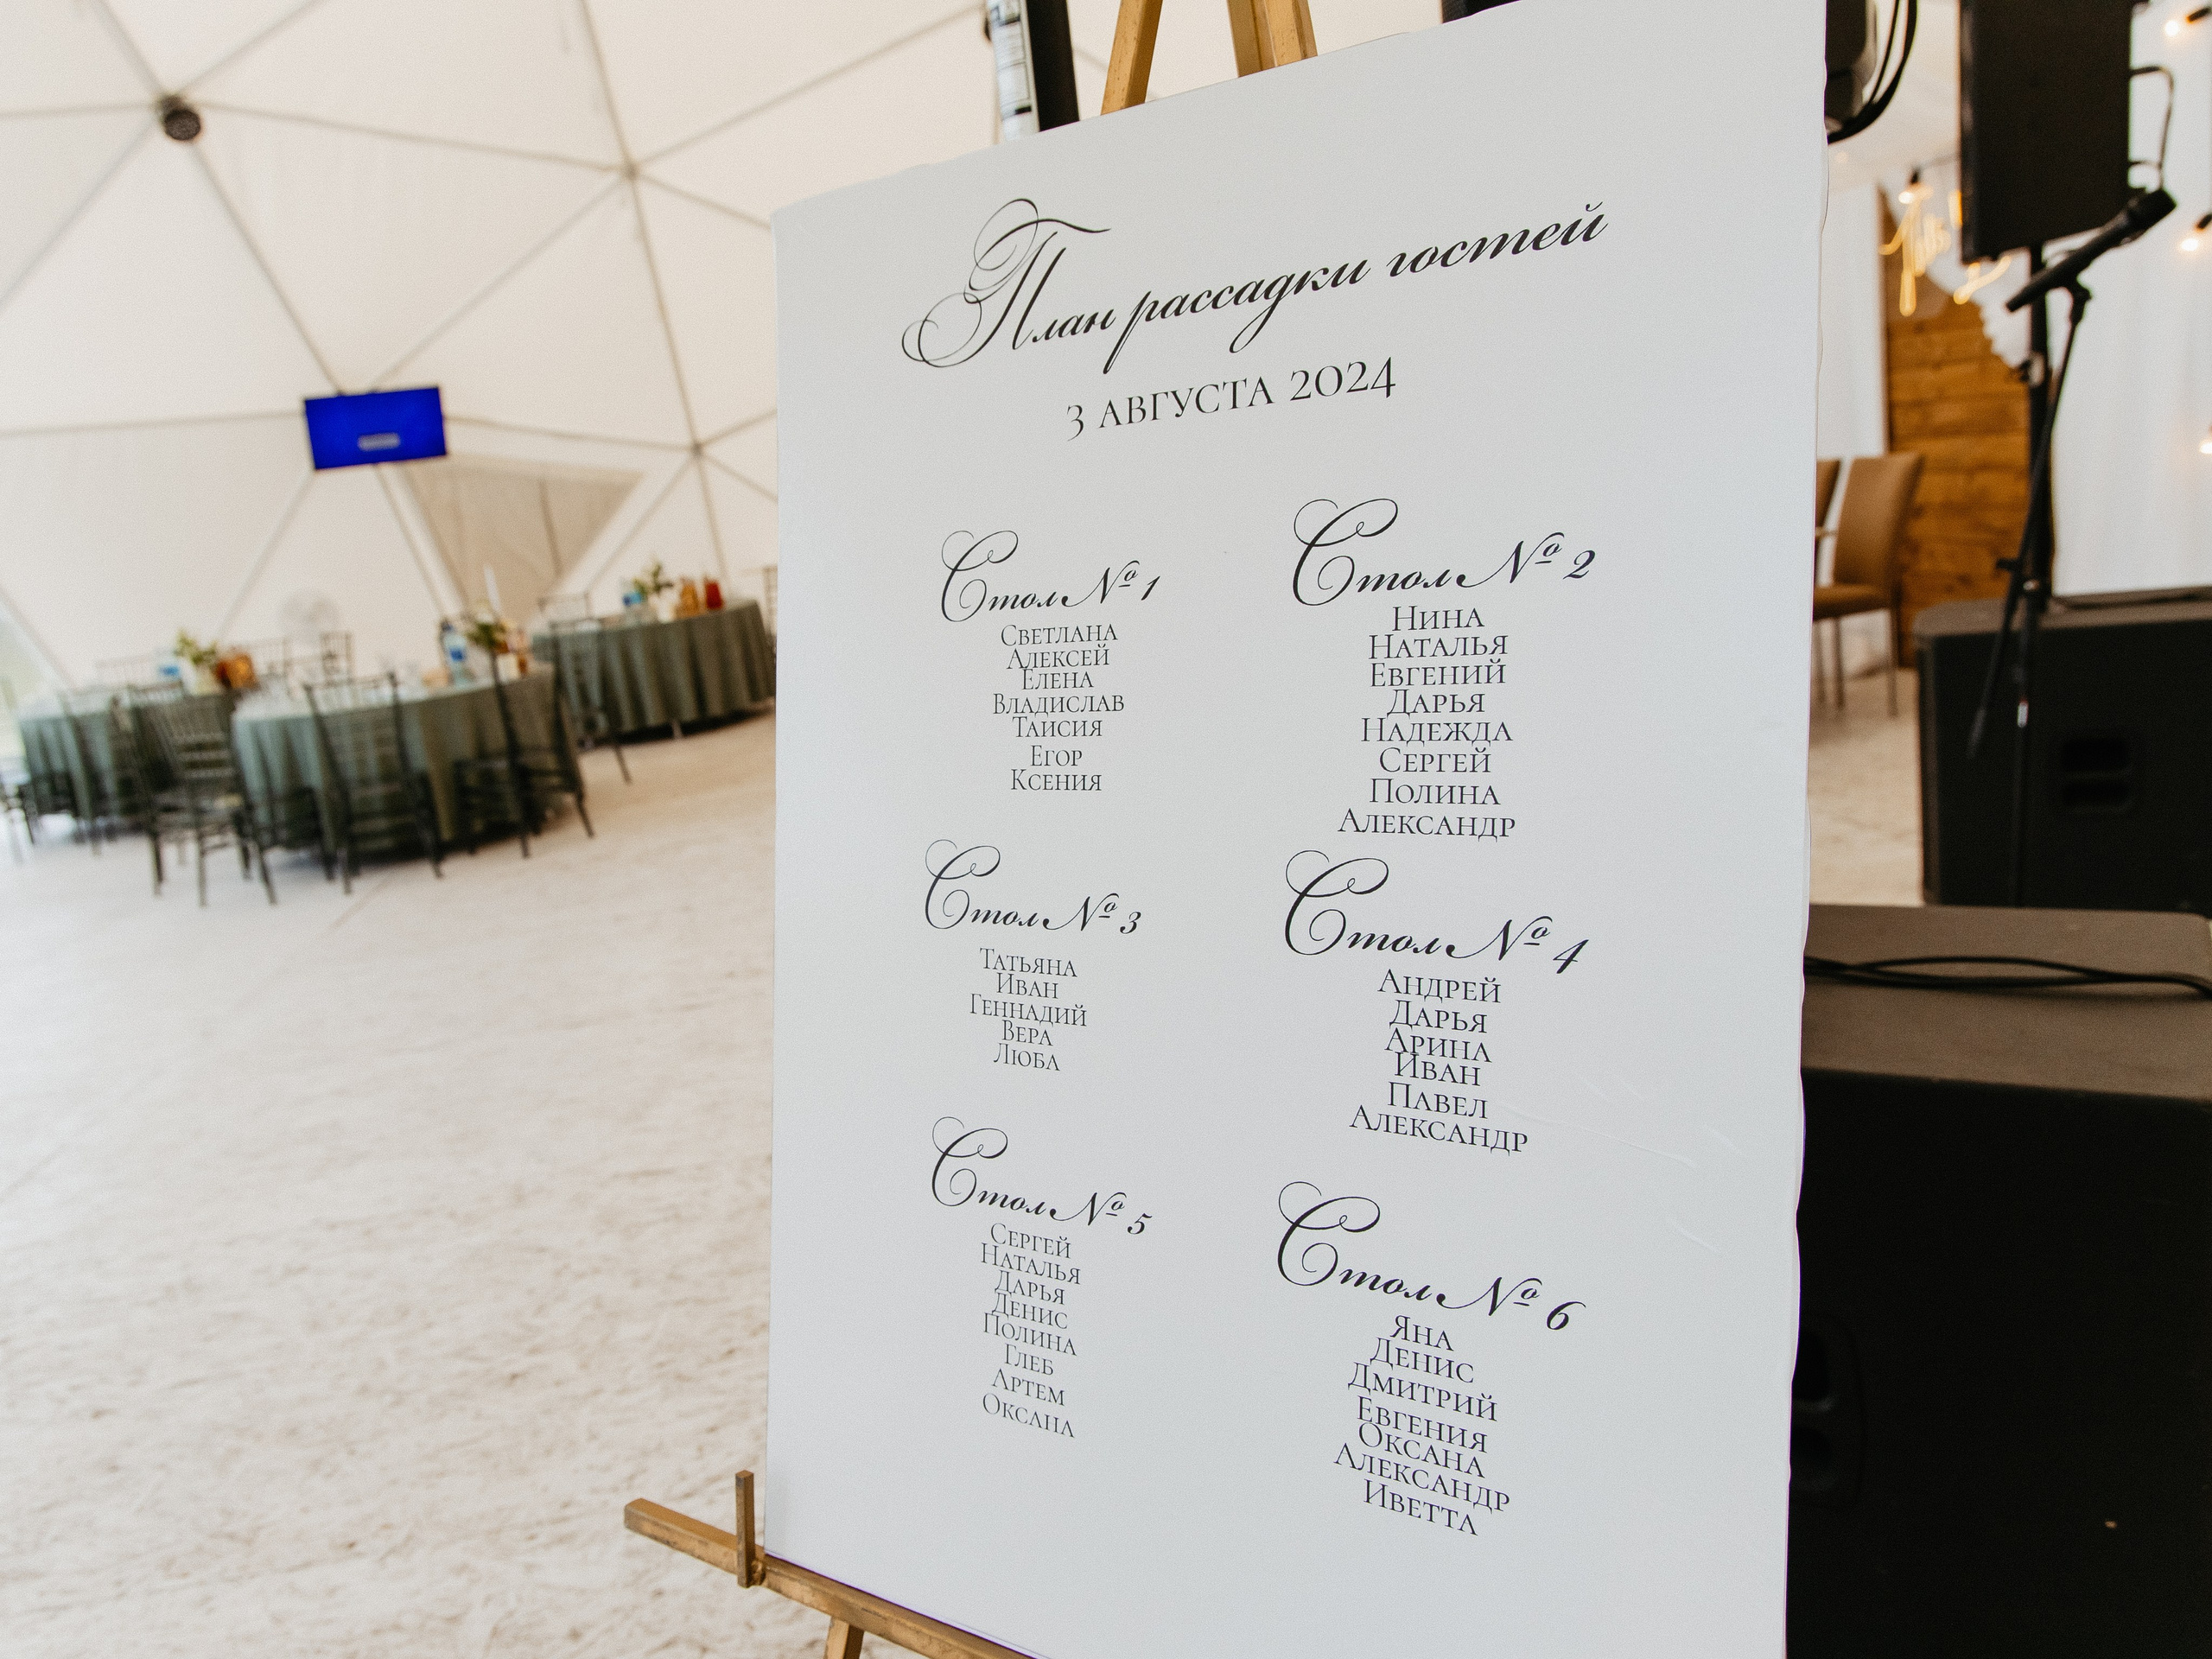 План рассадки гостей
3 АВГУСТА 2024
Стол № 1
СВЕТЛАНА
АЛЕКСЕЙ
ЕЛЕНА
ВЛАДИСЛАВ
ТАИСИЯ
ЕГОР
КСЕНИЯ
Стол № 2
НИНА
НАТАЛЬЯ
ЕВГЕНИЙ
ДАРЬЯ
НАДЕЖДА
СЕРГЕЙ
ПОЛИНА
АЛЕКСАНДР
Стол № 3
ТАТЬЯНА
ИВАН
ГЕННАДИЙ
ВЕРА
ЛЮБА
Стол № 4
АНДРЕЙ
ДАРЬЯ
АРИНА
ИВАН
ПАВЕЛ
АЛЕКСАНДР
Стол № 5
СЕРГЕЙ
НАТАЛЬЯ
ДАРЬЯ
ДЕНИС
ПОЛИНА
ГЛЕБ
АРТЕМ
ОКСАНА
Стол № 6
ЯНА
ДЕНИС
ДМИТРИЙ
ЕВГЕНИЯ
ОКСАНА
АЛЕКСАНДР
ИВЕТТА